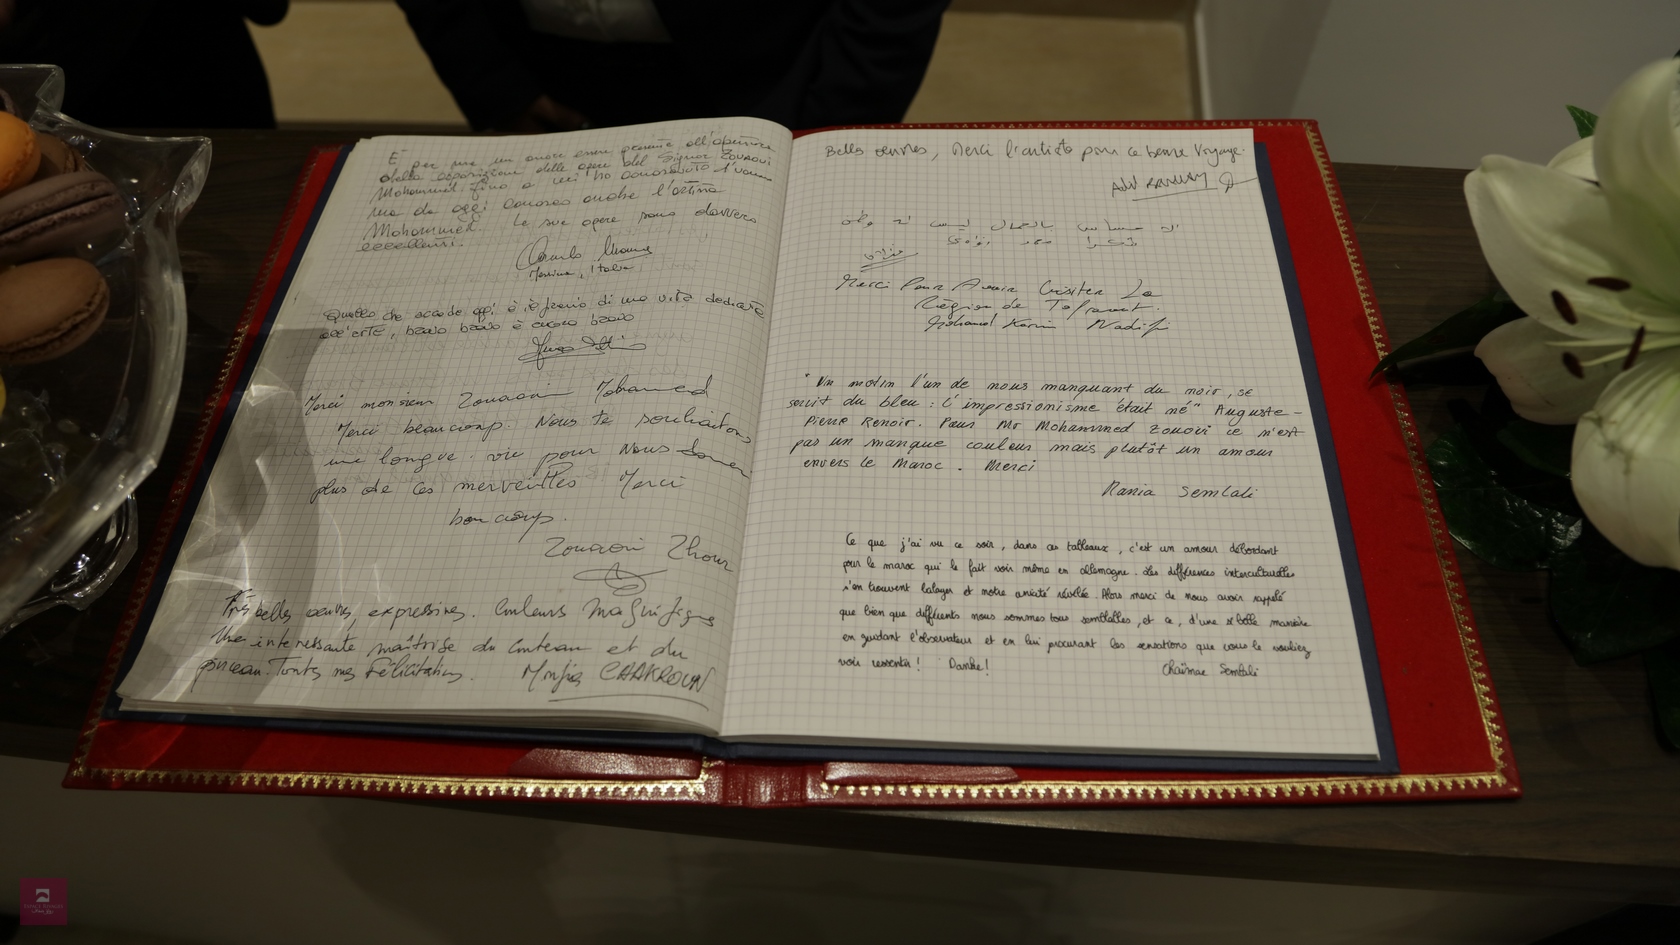 E' per me un onore essere presente all'apertura
della esposizione delle opere del Signor Zouaoui
Mohammed fino a ieri ho conosciuto l'uomo
ma da oggi conosco anche l'artista
Mohammed. Le sue opere sono davvero
eccellenti.
Messina, Italia
Quello che accade oggi è il premio di una vita dedicata
all'arte, bravo bravo è ancora bravo
Merci monsieur Zouaoui Mohamed
Merci beaucoup. Nous te souhaitons
une longue vie pour nous donner
plus de ces merveilles Merci
beaucoup.
Zouaoui Zhour
Très belles oeuvres, expressives. Couleurs magnifiques
Une interessante maîtrise du couteau et du
pinceau. Toutes mes félicitations. CHAKROUN
Belles oeuvres, Merci l'artiste pour ce beau Voyage.
بالجمال ليس له وطن
شكرا
Merci Pour Avoir Visiter La
Région de Tafraout.
Mohamed Karim Nadifi
"Un matin l'un de nous manquant du noir, se
servit du bleu : l'impressionisme était né" Auguste-
Pierre Renoir. Pour Mr Mohammed Zouovi ce n'est
pas un manque couleur mais plutôt un amour
envers le Maroc. Merci
Rania Semlali
Ce que j'ai vu ce soir, dans ces tableaux, c'est un amour débordant
pour le maroc qui le fait voir même en allemagne. Les différences interculturelles
s'en trouvent et notre amitié révélée. Alors merci de nous avoir rappelé
que bien que différents nous sommes tous semblables, et ce, d'une si belle manière
en guidant l'observateur et en lui procurant les sensations que vous le vouliez
voir ressentir ! Danke!
Chaïmae Semlali